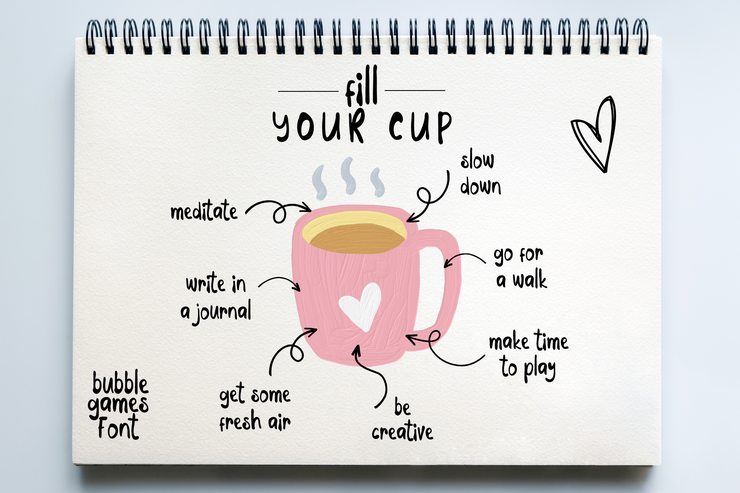 fill
YOUR CUP
slow
down
meditate
go for
a walk
write in
a journal
make time
to play
get some
fresh air
be
creative
bubble
games
font